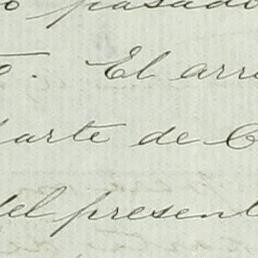 o pasado
o. El arre
parte de C
del present